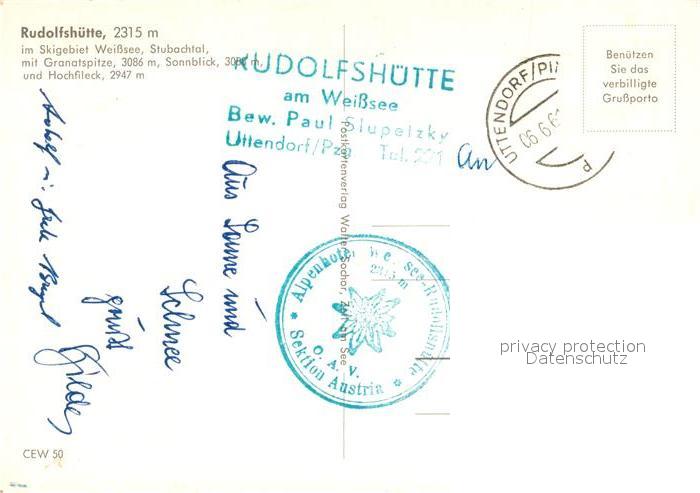 Rudolfshütte, 2315 m
im Skigebiet Weißsee, Stubachtal,
mit Granatspitze, 3086 m, Sonnblick, 3088 m,
und Hochfileck, 2947 m
RUDOLFSHÜTTE
am Weißsee
Bew. Paul Slupetzky
Uttendorf/Pzg Tel. 221
An
UTTENDORF/PI
06.6.6
P
Benützen
Sie das
verbilligte
Grußporto
Aus Sonne und
Schnee
grüßt
Hilde
Adolf u.
Postkartenverlag Walter Sochor, Zell am See
Alpenhotel Weißsee-Rudolfshütte
2315 m
Ö. A. V.
Sektion Austria
privacy protection
Datenschutz
CEW 50